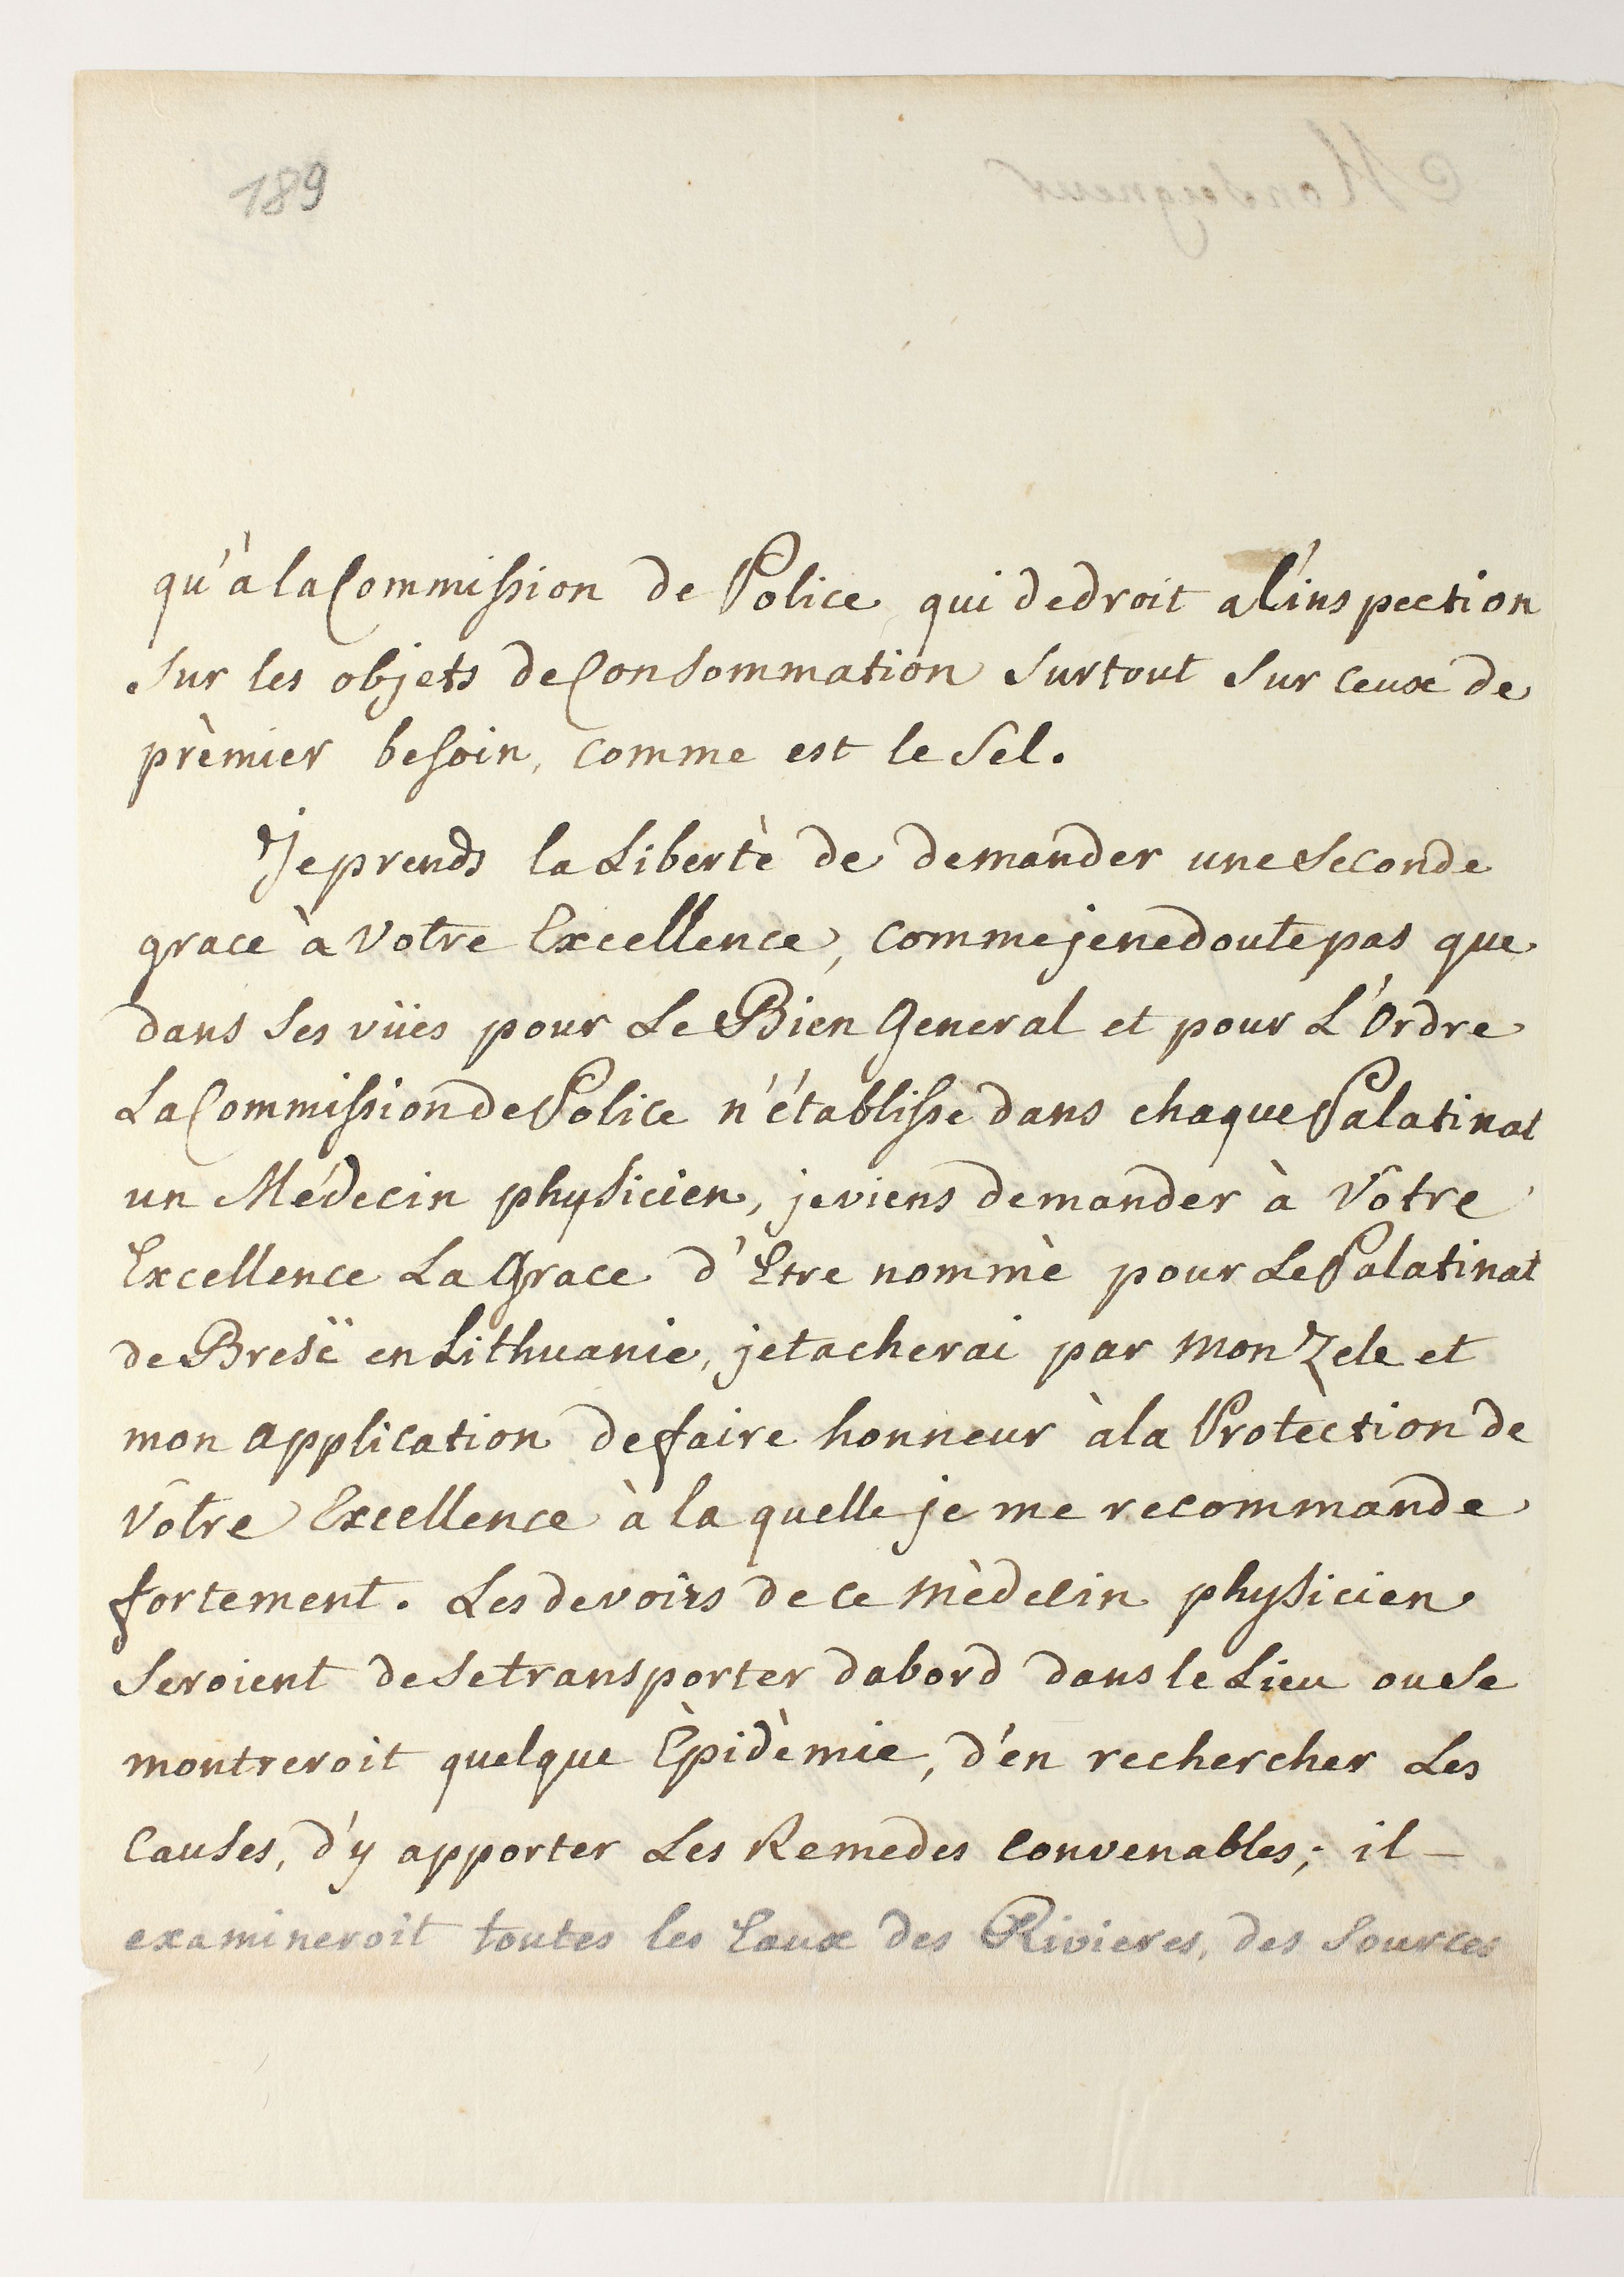 189
Monseigneur
qu'à la Commission de Police qui de droit a l'inspection
sur les objets de Consommation surtout sur ceux de
prèmier besoin, comme est le sel.
Je prends la Libertè de demander une seconde
grace à Votre Excellence, comme je ne doute pas que
dans ses vües pour Le Bien General et pour L'Ordre
La Commission de Police n'établisse dans chaque Palatinat
un Médecin physicien, je viens demander à Votre
Excellence La Grace d'Etre nommè pour Le Palatinat
de Bresc en Lithuanie, je tacherai par mon Zele et
mon application de faire honneur à la Protèction de
Votre Excellence à la quelle je me recommande
fortement. Les devoirs de ce mèdecin physicien
seroient de se transporter dabord dans le Lieu ou se
montreroit quelque Èpidèmie, d'en rechercher Les
Causes, d'y apporter Les Remedes convenables; il -
examineroit toutes les Eaux des Rivieres, des Sources